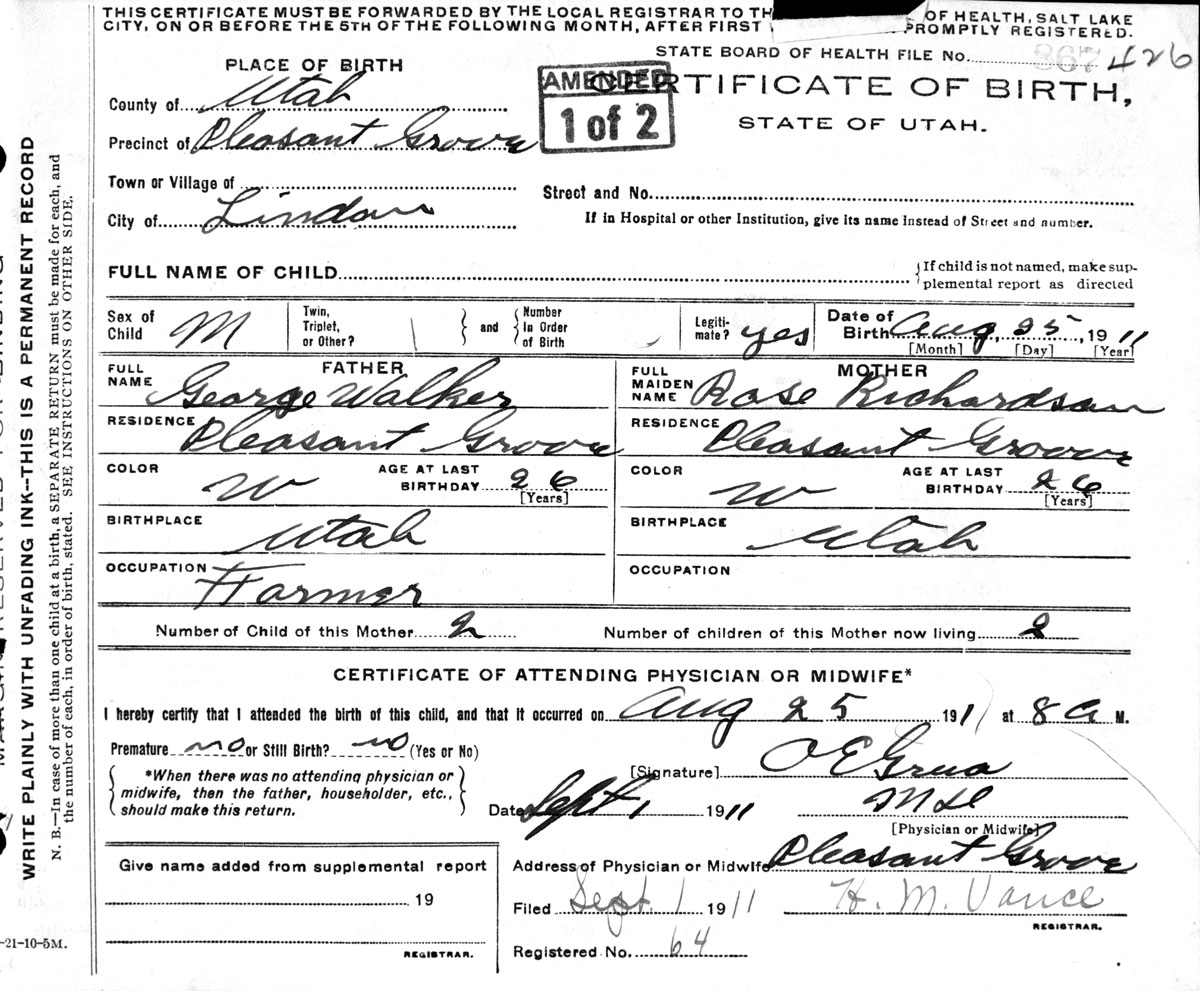 THIS CERTIFICATE MUST BE FORWARDED BY THE LOCAL REGISTRAR TO TH OF HEALTH, SALT LAKE
CITY, ON OR BEFORE THE 5TH OF THE FOLLOWING MONTH, AFTER FIRST PROMPTLY REGISTERED.
STATE BOARD OF HEALTH FILE No. 867 426
PLACE OF BIRTH
AMENDED
1 of 2
CERTIFICATE OF BIRTH,
STATE OF UTAH.
County of Utah
Precinct of Pleasant Grove
Town or Village of
Street and No.
City of Lindon
If in Hospital or other Institution, give its name Instead of Street and number.
FULL NAME OF CHILD
If child is not named, make sup-
plemental report as directed
Sex of Child M
Twin, Triplet, or Other?
and
Number In Order of Birth
Legiti-mate? yes
Date of Birth Aug, 25, 1911
[Month] [Day] [Year]
FATHER
FULL NAME George Walker
MOTHER
FULL MAIDEN NAME Rose Richardson
RESIDENCE Pleasant Grove
RESIDENCE Pleasant Grove
COLOR W
AGE AT LAST BIRTHDAY 26
[Years]
COLOR W
AGE AT LAST BIRTHDAY 26
[Years]
BIRTHPLACE Utah
BIRTHPLACE Utah
OCCUPATION Farmer
OCCUPATION
Number of Child of this Mother 2
Number of children of this Mother now living 2
CERTIFICATE OF ATTENDING PHYSICIAN OR MIDWIFE*
I hereby certify that I attended the birth of this child, and that it occurred on Aug 25 1911 at 8 a M.
Premature no or Still Birth? no (Yes or No)
*When there was no attending physician or
midwife, then the father, householder, etc.,
should make this return.
[Signature] O E Grua
Date Sept 1 1911
[Physician or Midwife]
Address of Physician or Midwife Pleasant Grove
Give name added from supplemental report
19
REGISTRAR.
Filed Sept. 1 1911 H. M. Vance
REGISTRAR.
Registered No. 64
WRITE PLAINLY WITH UNFADING INK--THIS IS A PERMANENT RECORD
N. B.—In case of more than one child at a birth, a SEPARATE RETURN must be made for each, and
the number of each, in order of birth, stated. SEE INSTRUCTIONS ON OTHER SIDE.
-21-10-5M.